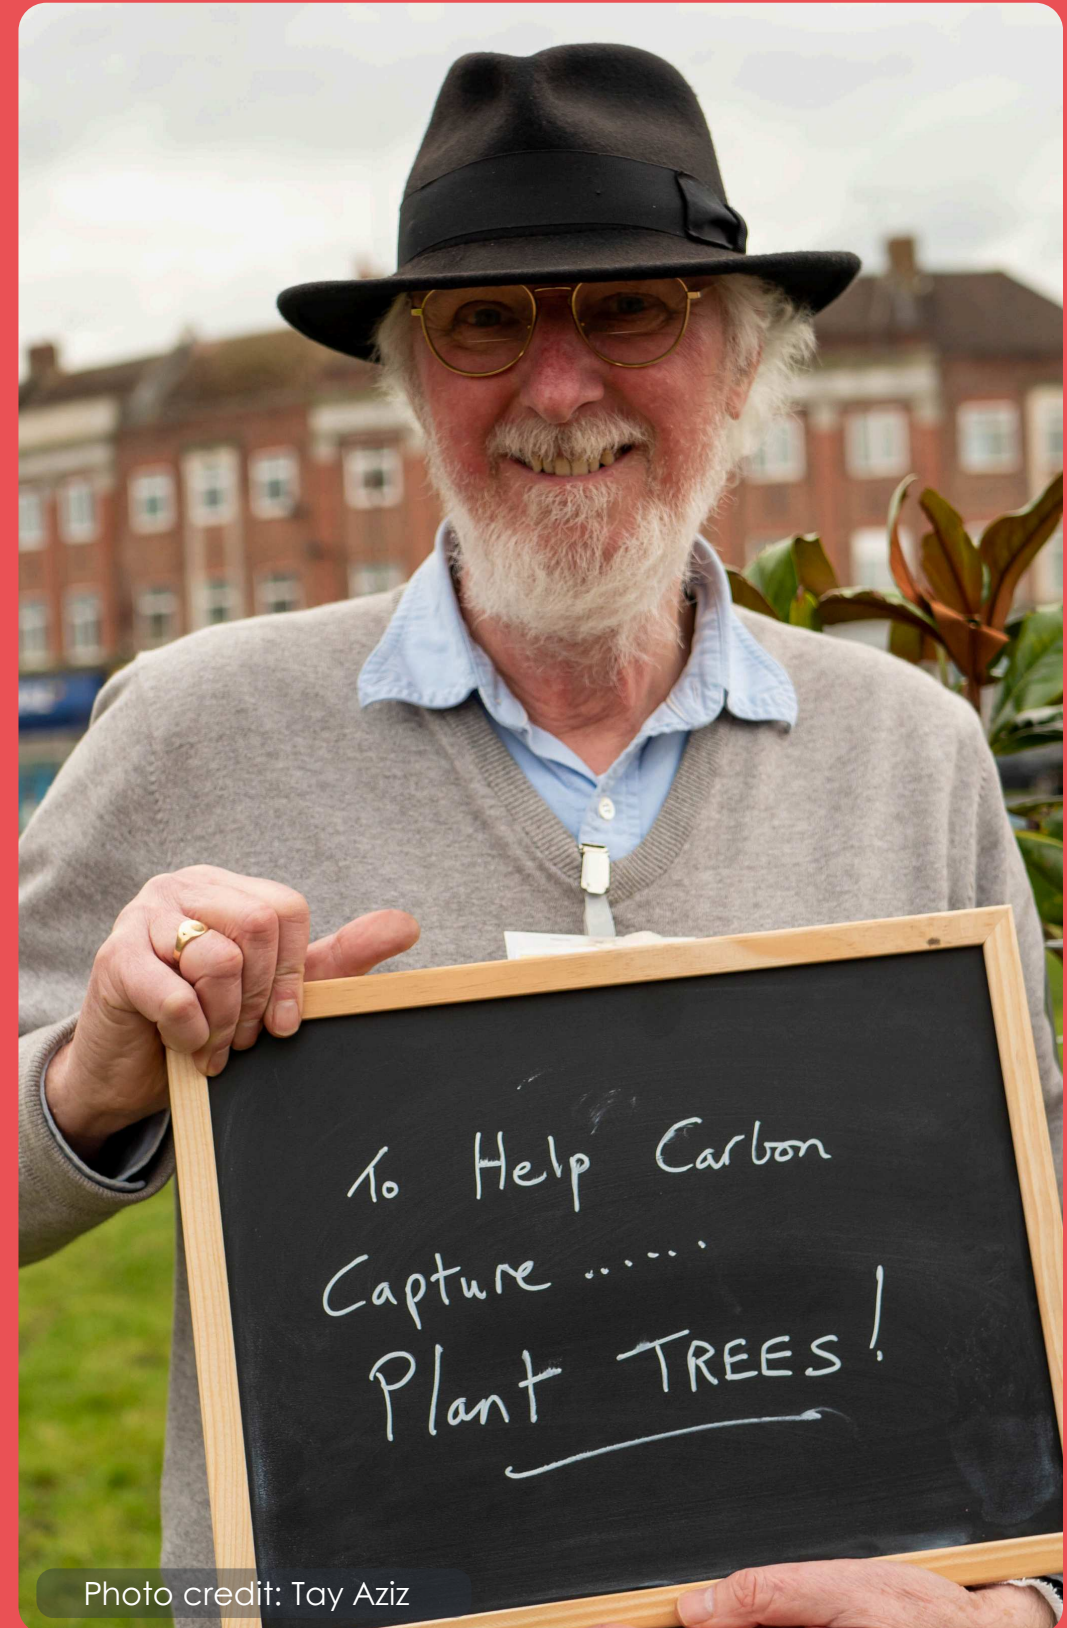 To Help Carbon
Capture .......
Plant TREES!
Photo credit: Tay Aziz